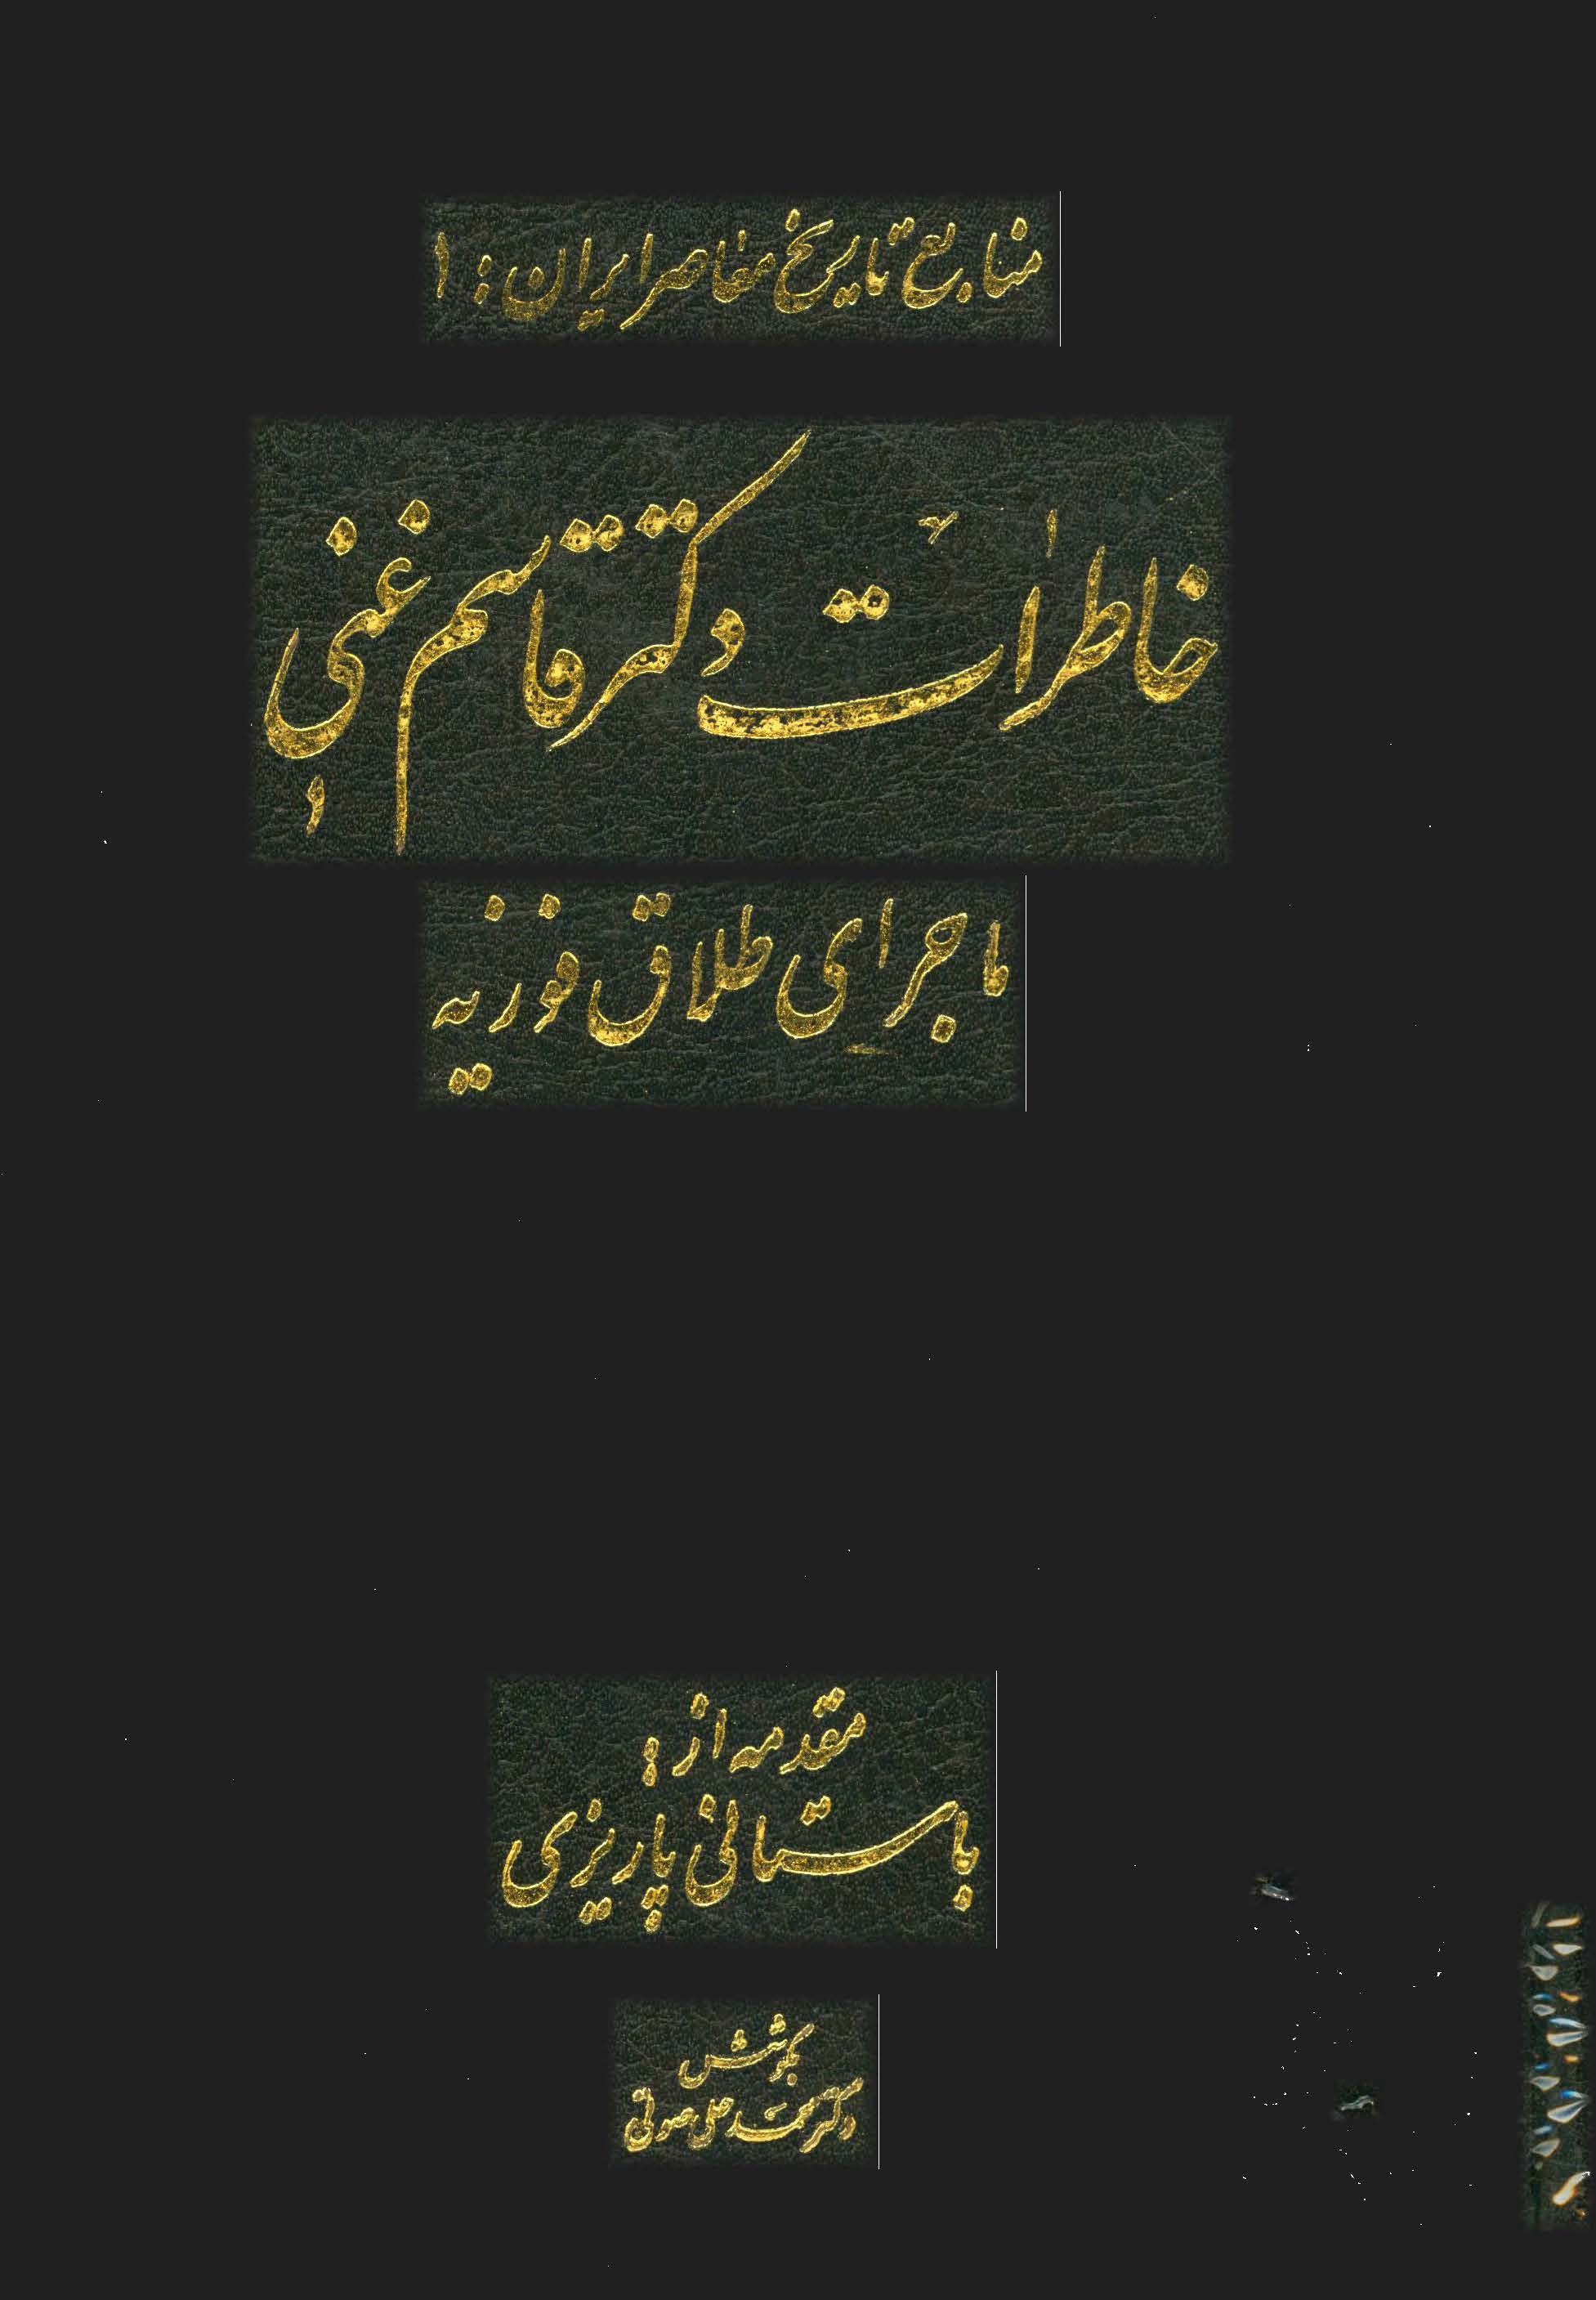 منابع تاریخ معاصر ایران: ۱
خاطرات دکتر قاسم غنی
و
ماجرای طلاق فوزیه
مقدمه از:
باستانی پاریزی
بکوشش
دکتر محمد علی صوتی